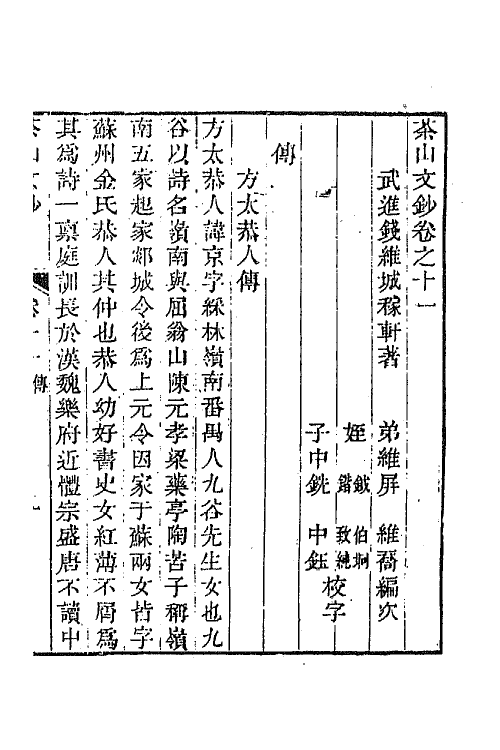 茶山文鈔卷之十一
武進錢維城稼軒著
弟維屏 維喬編次
姪 鉞 伯坰
鍇 致純
子中銑 中鈺 校字
傳
方太恭人傳
方太恭人諱京字綵林嶺南番禺人九谷先生女也九
谷以詩名嶺南與屈翁山陳元孝梁藥亭陶苦子稱嶺
南五家起家郯城令後爲上元令因家于蘇兩女皆字
蘇州金氏恭人其仲也恭人幼好書史女紅薄不屑爲
其爲詩一稟庭訓長於漢魏樂府近體宗盛唐不讀中
茶山文鈔 卷十一 傳 一